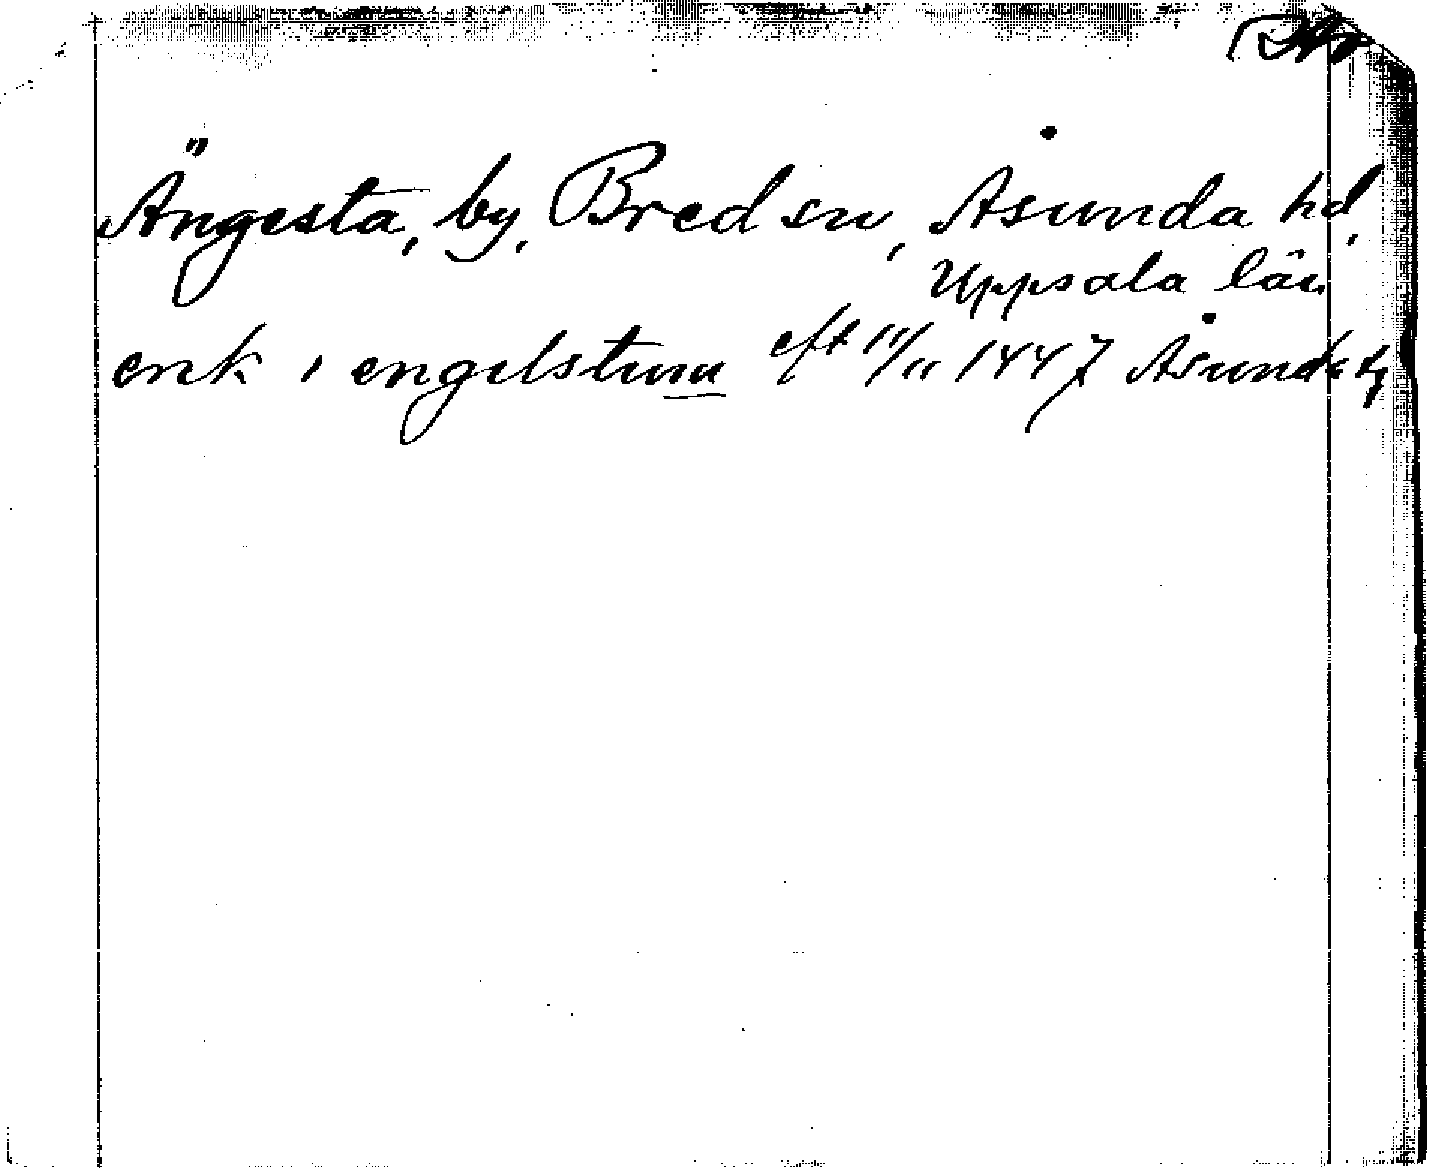 Ängesta, by, Bred sn, Åsunda hd,
Uppsala län
erik i engilstum eft 11/11 1447 Åsunda